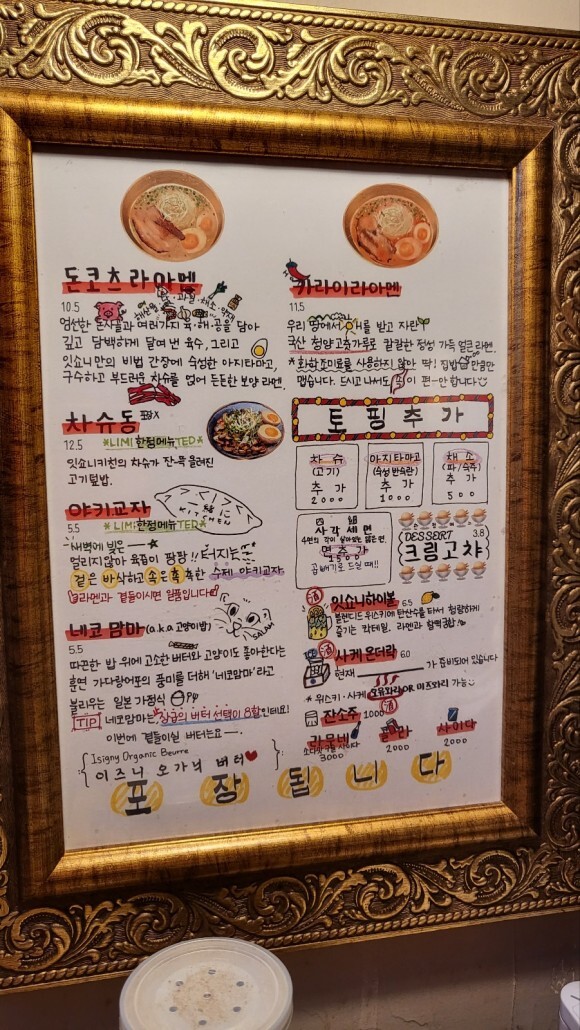 돈코츠라아멘
10.5
엄선한 돈사골과 여러가지 육·해·공을 담아
깊고 담백하게 달여 낸 육수, 그리고
잇쇼니만의 비법 간장에 숙성한 아지타마고,
구수하고 부드러운 차슈를 얹어 든든한 보양 라멘.
차슈동 포장X
12.5 *LIMI한정메뉴TED*
잇쇼니키친의 차슈가 잔-뜩 올려진
고기덮밥.
야키교자
5.5 *LIMI한정메뉴TED*
새벽에 빚은
얼리지않아 육즙이 팡팡!! 터지는
겉은 바삭하고 속은 촉촉한 수제 야키교자.
라멘과 곁들이시면 일품입니다
KITCHEN
네코 맘마 (a.k.a 고양이밥)
5.5
따끈한 밥 위에 고소한 버터와 고양이도 좋아한다는
훈연 가다랑어포의 풍미를 더해 '네코맘마'라고
불리우는 일본 가정식
TIP 네코맘마는 장금의 버터 선택이 8할인데요!
이번에 곁들이실 버터는요—.
Isigny Organic Beurre
이즈니 오가닉 버터
카라이라아멘
11.5
우리 땅에서 해를 받고 자란
국산 청양고춧가루로 칼칼한 정성 가득 얼큰 라멘.
*화학조미료를 사용하지 않아 딱! 집밥만큼만
맵습니다. 드시고 나서도 속이 편-안 합니다
토핑추가
차슈
(고기)
추가
2000
아지타마고
(숙성 반숙란)
추가
1000
채소
(파/숙주)
추가
500
사각 세면
4면의 각이 살아있는 얇은 면.
면추가
1500
곱빼기로 드실 때!!
DESSERT 3.8
크림고차
잇쇼니하이볼 6.5
블렌디드 위스키에 탄산수를 타서 청량하게
즐기는 칵테일. 라멘과 찰떡궁합
사케 온더락 6.0
현재 가 준비되어 있습니다
*위스키·사케 오유와리 OR 미즈와리 가능
잔소주 1000
라무네
소다맛 구슬 사이다
3000
콜라
2000
사이다
2000
포장됩니다